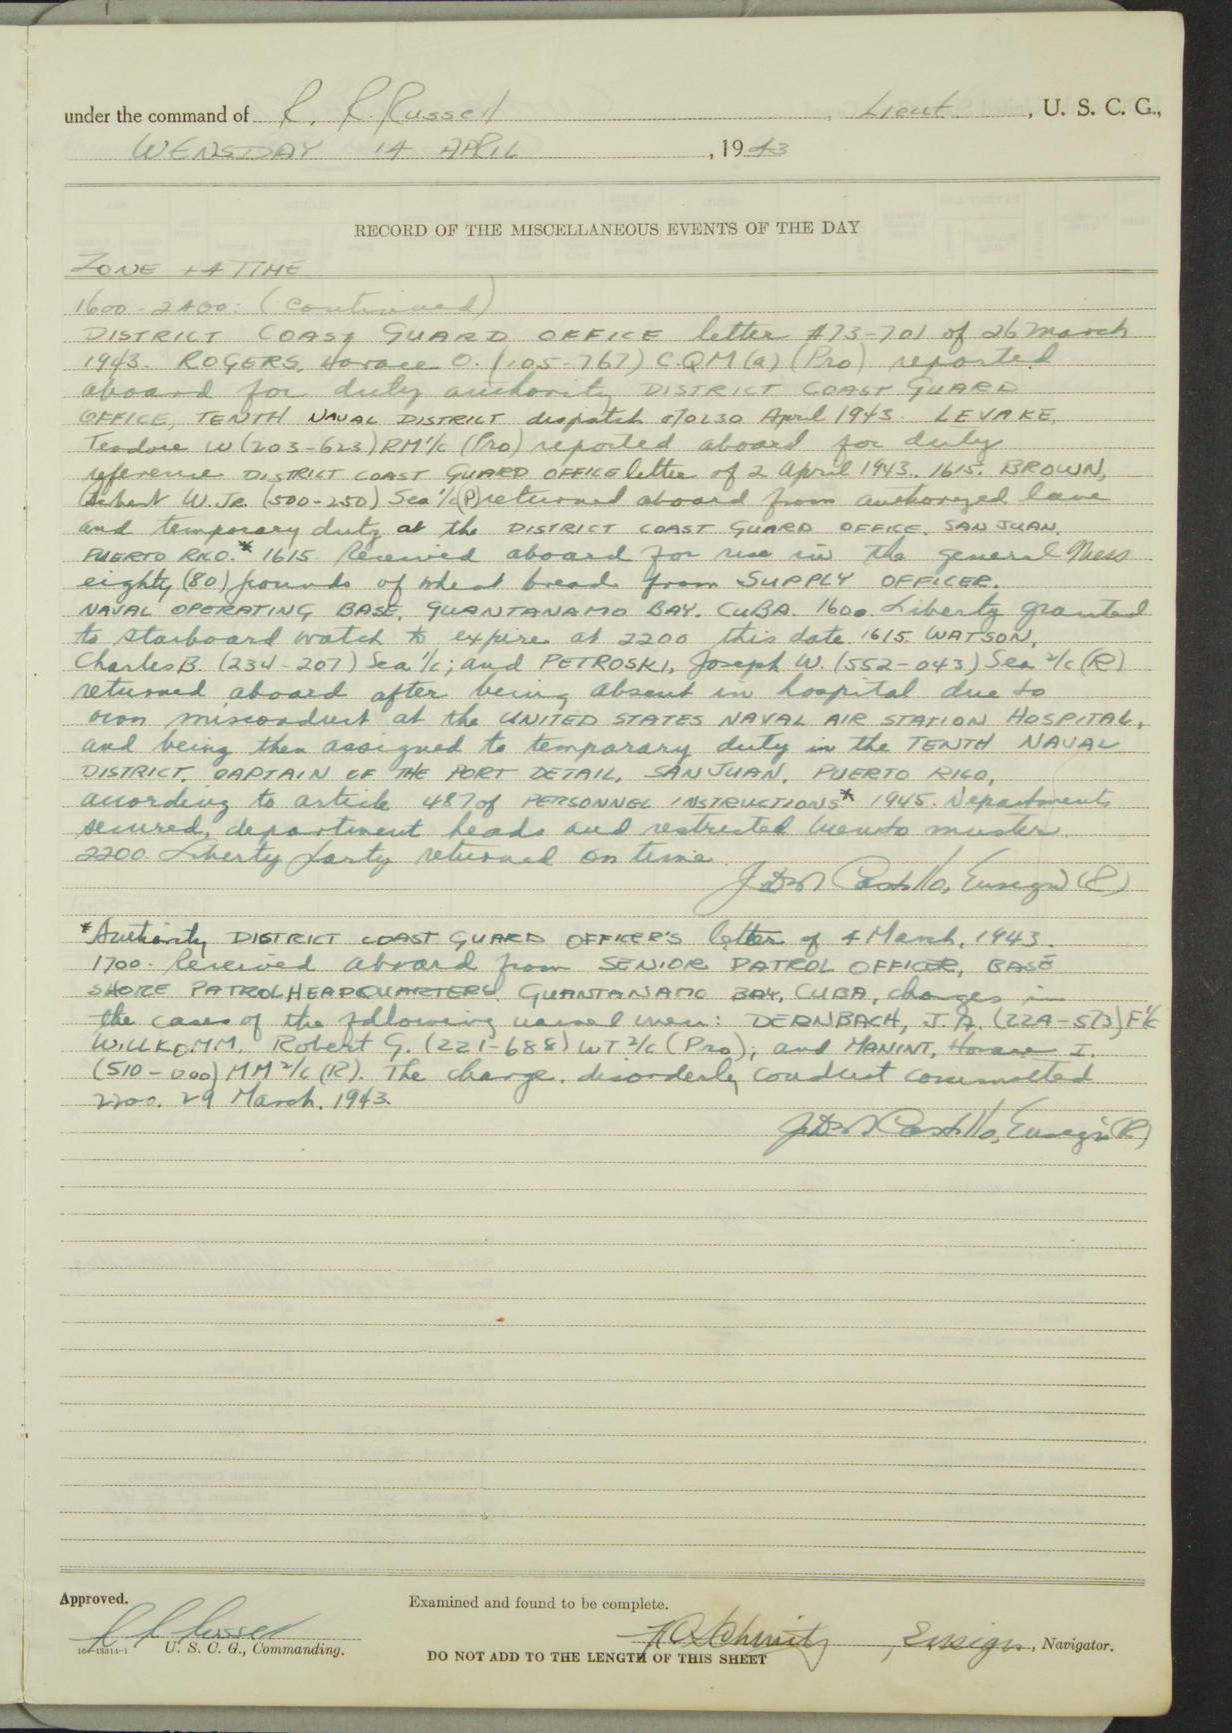 under the command of R. R. Russell, Lieut, U. S. C. G.,
WENSDAY 14 APRIL, 1943
RECORD OF THE MISCELLANEOUS EVENTS OF THE DAY
ZONE +4 TIME
1600-2400: (continued)
DISTRICT COAST GUARD OFFICE letter #73-701 of 26 March
1943. ROGERS, Horace O. (105-767) C.Q.M (a) (Pro) reported
aboard for duty authority DISTRICT COAST GUARD
OFFICE, TENTH NAVAL DISTRICT dispatch 070230 April 1943. LEVAKE,
Teodore W (203-623) RM 1/c (Pro) reported aboard for duty
reference DISTRICT COAST GUARD OFFICE letter of 2 April 1943. 1615. BROWN,
W. JR. (500-250) Sea 1/c (R) returned aboard from authorized leave
and temporary duty at the DISTRICT COAST GUARD OFFICE, SAN JUAN,
PUERTO RICO.* 1615 Received aboard for use in the general Mess
eighty (80) pounds of wheat bread from SUPPLY OFFICER,
NAVAL OPERATING BASE, GUANTANAMO BAY, CUBA. 1600 Liberty granted
to starboard watch to expire at 2200 this date. 1615 WATSON,
Charles B. (234-207) Sea 1/c; and PETROSKI, Joseph W. (552-043) Sea 2/c (R)
returned aboard after being absent in hospital due to
own misconduct at the UNITED STATES NAVAL AIR STATION HOSPITAL,
and being then assigned to temporary duty in the TENTH NAVAL
DISTRICT, CAPTAIN OF THE PORT DETAIL, SAN JUAN, PUERTO RICO,
according to article 487 of PERSONNEL INSTRUCTIONS* 1945. Departments
secured, department heads and restricted men to muster.
2200 Liberty party returned on time.
Castillo, Ensign (R)
*Authority DISTRICT COAST GUARD OFFICER'S letter of 4 March, 1943.
1700. Received aboard from SENIOR PATROL OFFICER, BASE
SHORE PATROL HEADQUARTERS, GUANTANAMO BAY, CUBA, charges in
the cases of the following named men: DERNBACH, J. A. (224-573) F 1/c
WILLKOMM, Robert G. (221-688) WT 2/c (Pro); and MANINT, Horace I.
(510-000) MM 2/c (R). The charge, disorderly conduct committed
2200, 29 March, 1943.
Castillo, Ensign (R)
Approved.
Examined and found to be complete.
R R Russell
U. S. C. G., Commanding.
Schmitz, Ensign, Navigator.
16-13314-1
DO NOT ADD TO THE LENGTH OF THIS SHEET